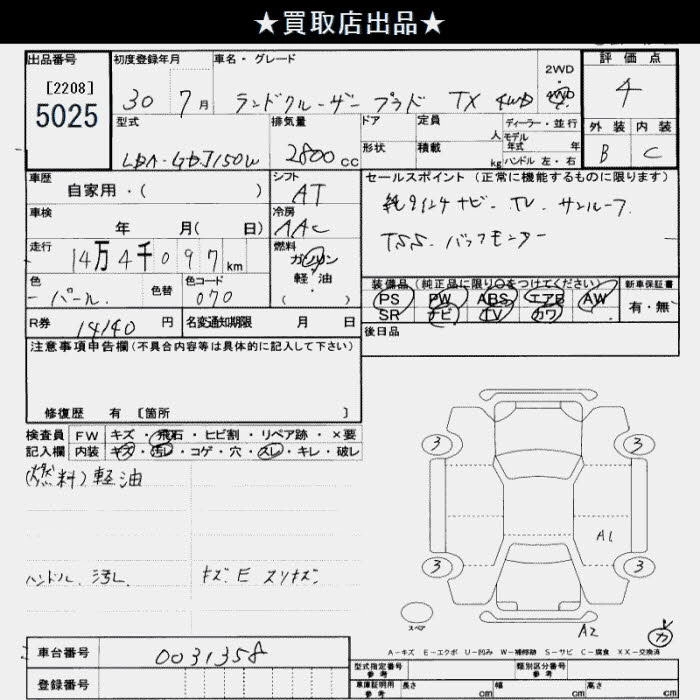 ★買取店出品★
出品番号
[2208]
5025
初度登録年月
30 7月
車名・グレード
ランドクルーザー プラド TX 4WD
2WD
・
4WD
評価点
4
外装 内装
B C
型式
LDA-GDJ150W
排気量
2800cc
ドア
形状
定員 人
積載 kg
ディーラー・並行
モデル年式 年
ハンドル 左・右
車歴
自家用・( )
シフト
AT
セールスポイント (正常に機能するものに限ります)
純9インチナビ. TV. サンルーフ.
TSS. バックモニター
車検
年 月( 日)
冷房
AAC
走行
14万4千097km
燃料
ガソリン
軽・油
( )
色
パール
色替
色コード
070
装備品 (純正品に限り○をつけてください)
PS PW ABS エアB AW
SR ナビ TV カワ
新車保証書
有・無
R券 14140 円
名変通知期限 月 日
後日品
注意事項申告欄(不具合内容等は具体的に記入して下さい)
修復歴 有 [箇所 ]
検査員
記入欄
FW キズ・飛石・ヒビ割・リペア跡・×要
内装 キズ・汚レ・コゲ・穴・スレ・キレ・破レ
(燃料)軽油
ハンドル. 汚レ. キズ E スリキズ
3 3
A1
3 3
スペア
A2
カ
A−キズ E−エクボ U−凹み W−補修跡 S−サビ C−腐食 XX−交換済
車台番号 0031358
登録番号
型式指定番号
参考
類別区分番号
参考
車庫証明用
参考
長さ cm 幅 cm 高さ cm